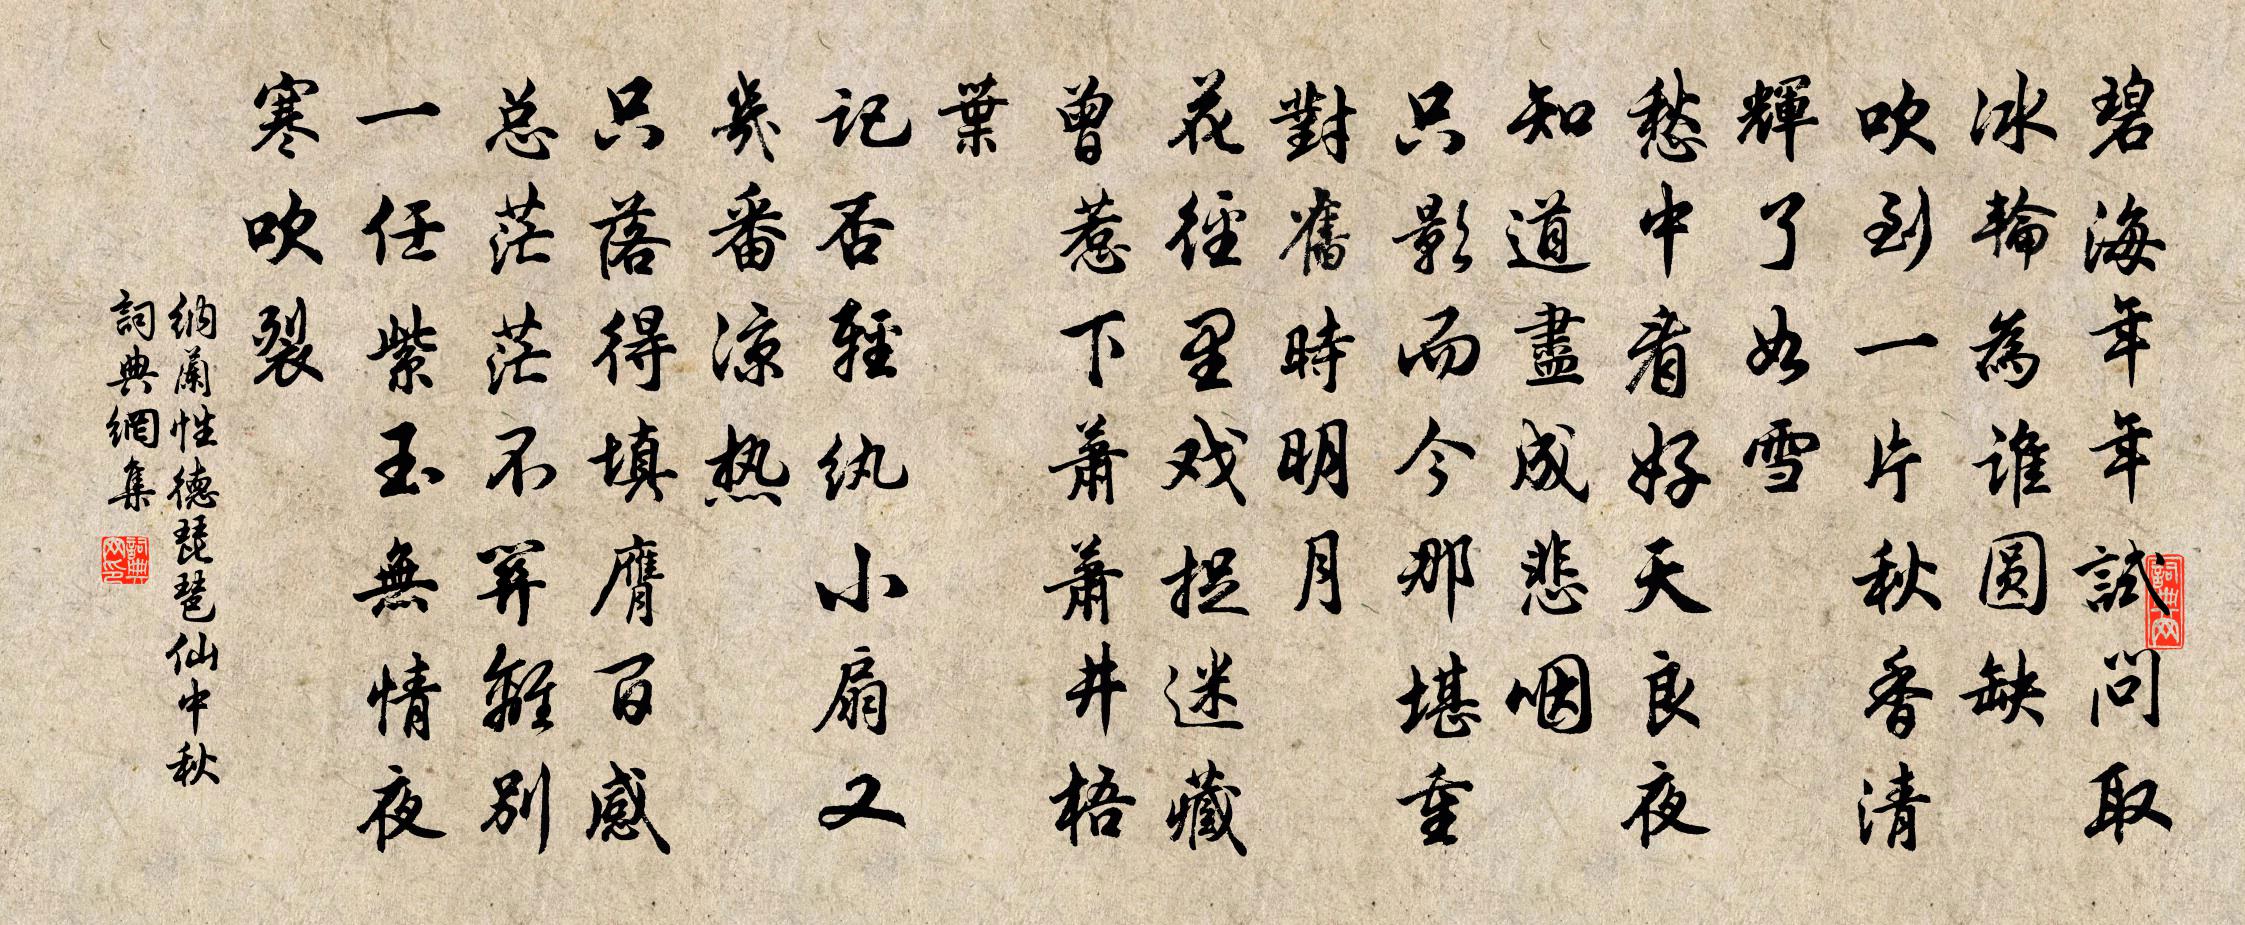 碧海年年試問取
冰輪為誰圆缺
吹到一片秋香清
輝了如雪
愁中看好天良夜
知道盡成悲咽
只影而今那堪重
對舊時明月
花徑里戏捉迷藏
曾惹下蕭蕭井梧
葉
記否輕纨小扇又
幾番凉热
只落得填膺百感
总茫茫不關離别
一任紫玉無情夜
寒吹裂
納蘭性德琵琶仙中秋
詞典網集
詞典网
詞典网印